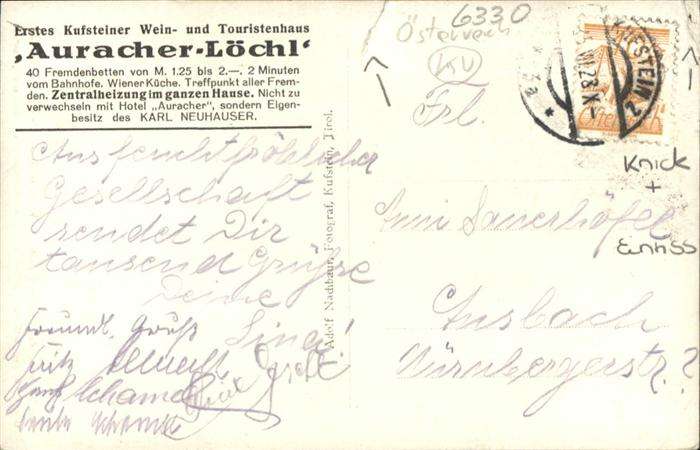 Erstes Kufsteiner Wein- und Touristenhaus
‚Auracher-Löchl‘
40 Fremdenbetten von M. 1.25 bis 2.—. 2 Minuten
vom Bahnhofe. Wiener Küche. Treffpunkt aller Frem-
den. Zentralheizung im ganzen Hause. Nicht zu
verwechseln mit Hotel „Auracher“, sondern Eigen-
besitz des KARL NEUHAUSER.
Aus feuchtfröhlicher
Gesellschaft
sendet Dir
tausend Grüße
Deine
Lina!
Freundl. Gruß
Fritz
Adolf Nadlbaur, Fotograf, Kufstein, Tirol.
6330
Österreich
KV
Frl.
KUFSTEIN 2
Österreich
Knick
+
Einriss
Anni Sauerhöfer
Ansbach
Nürnbergerstr. 2